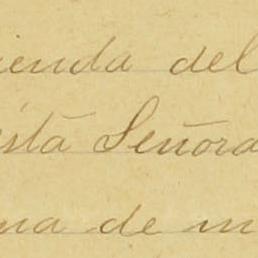 ienda del
esta Señora
na de m